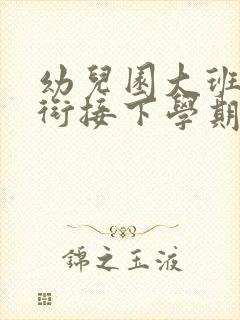 幼兒園大班
銜接下學期
錦之玉液